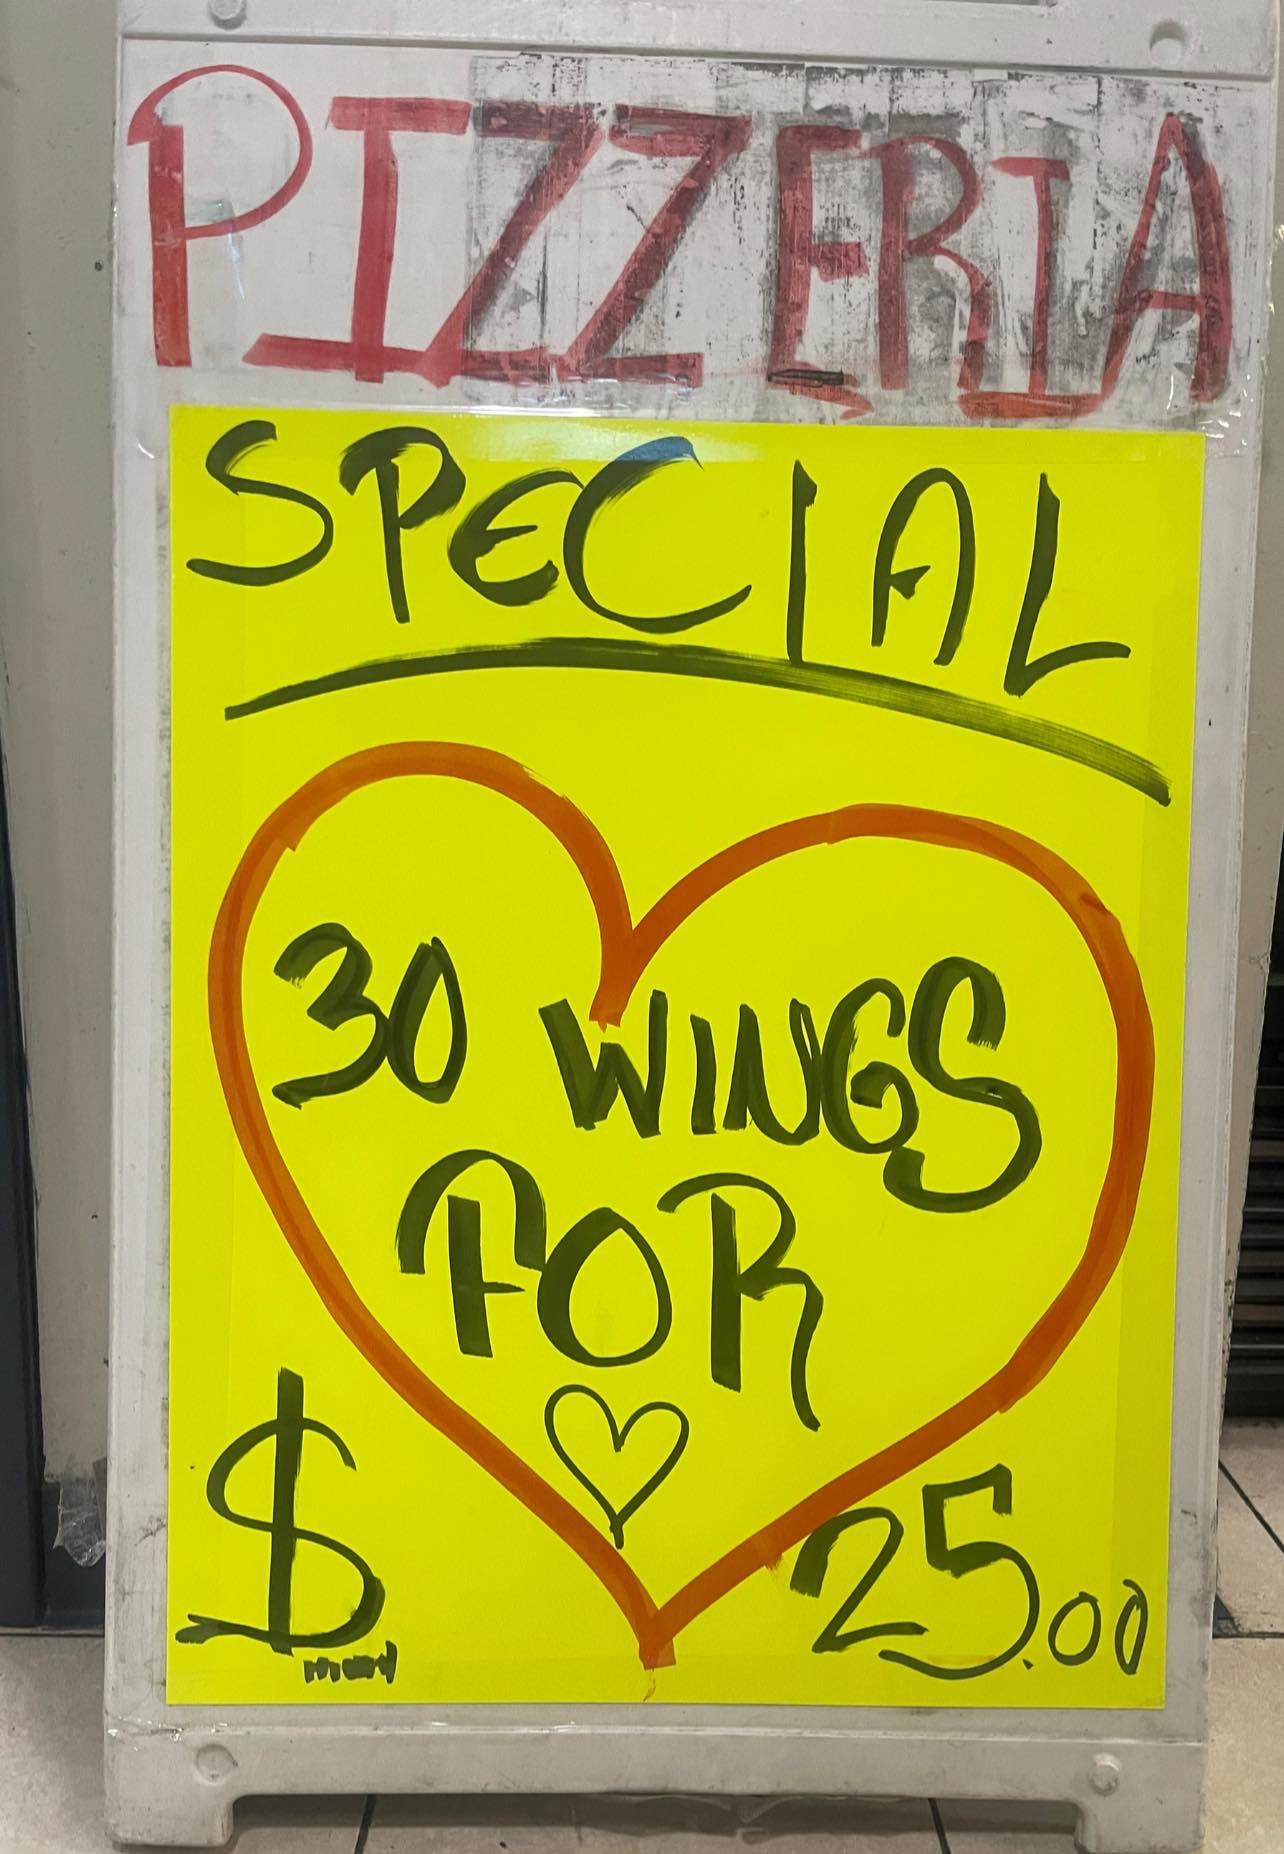 PIZZERIA
SPECIAL
30 WINGS
FOR
$ 25.00